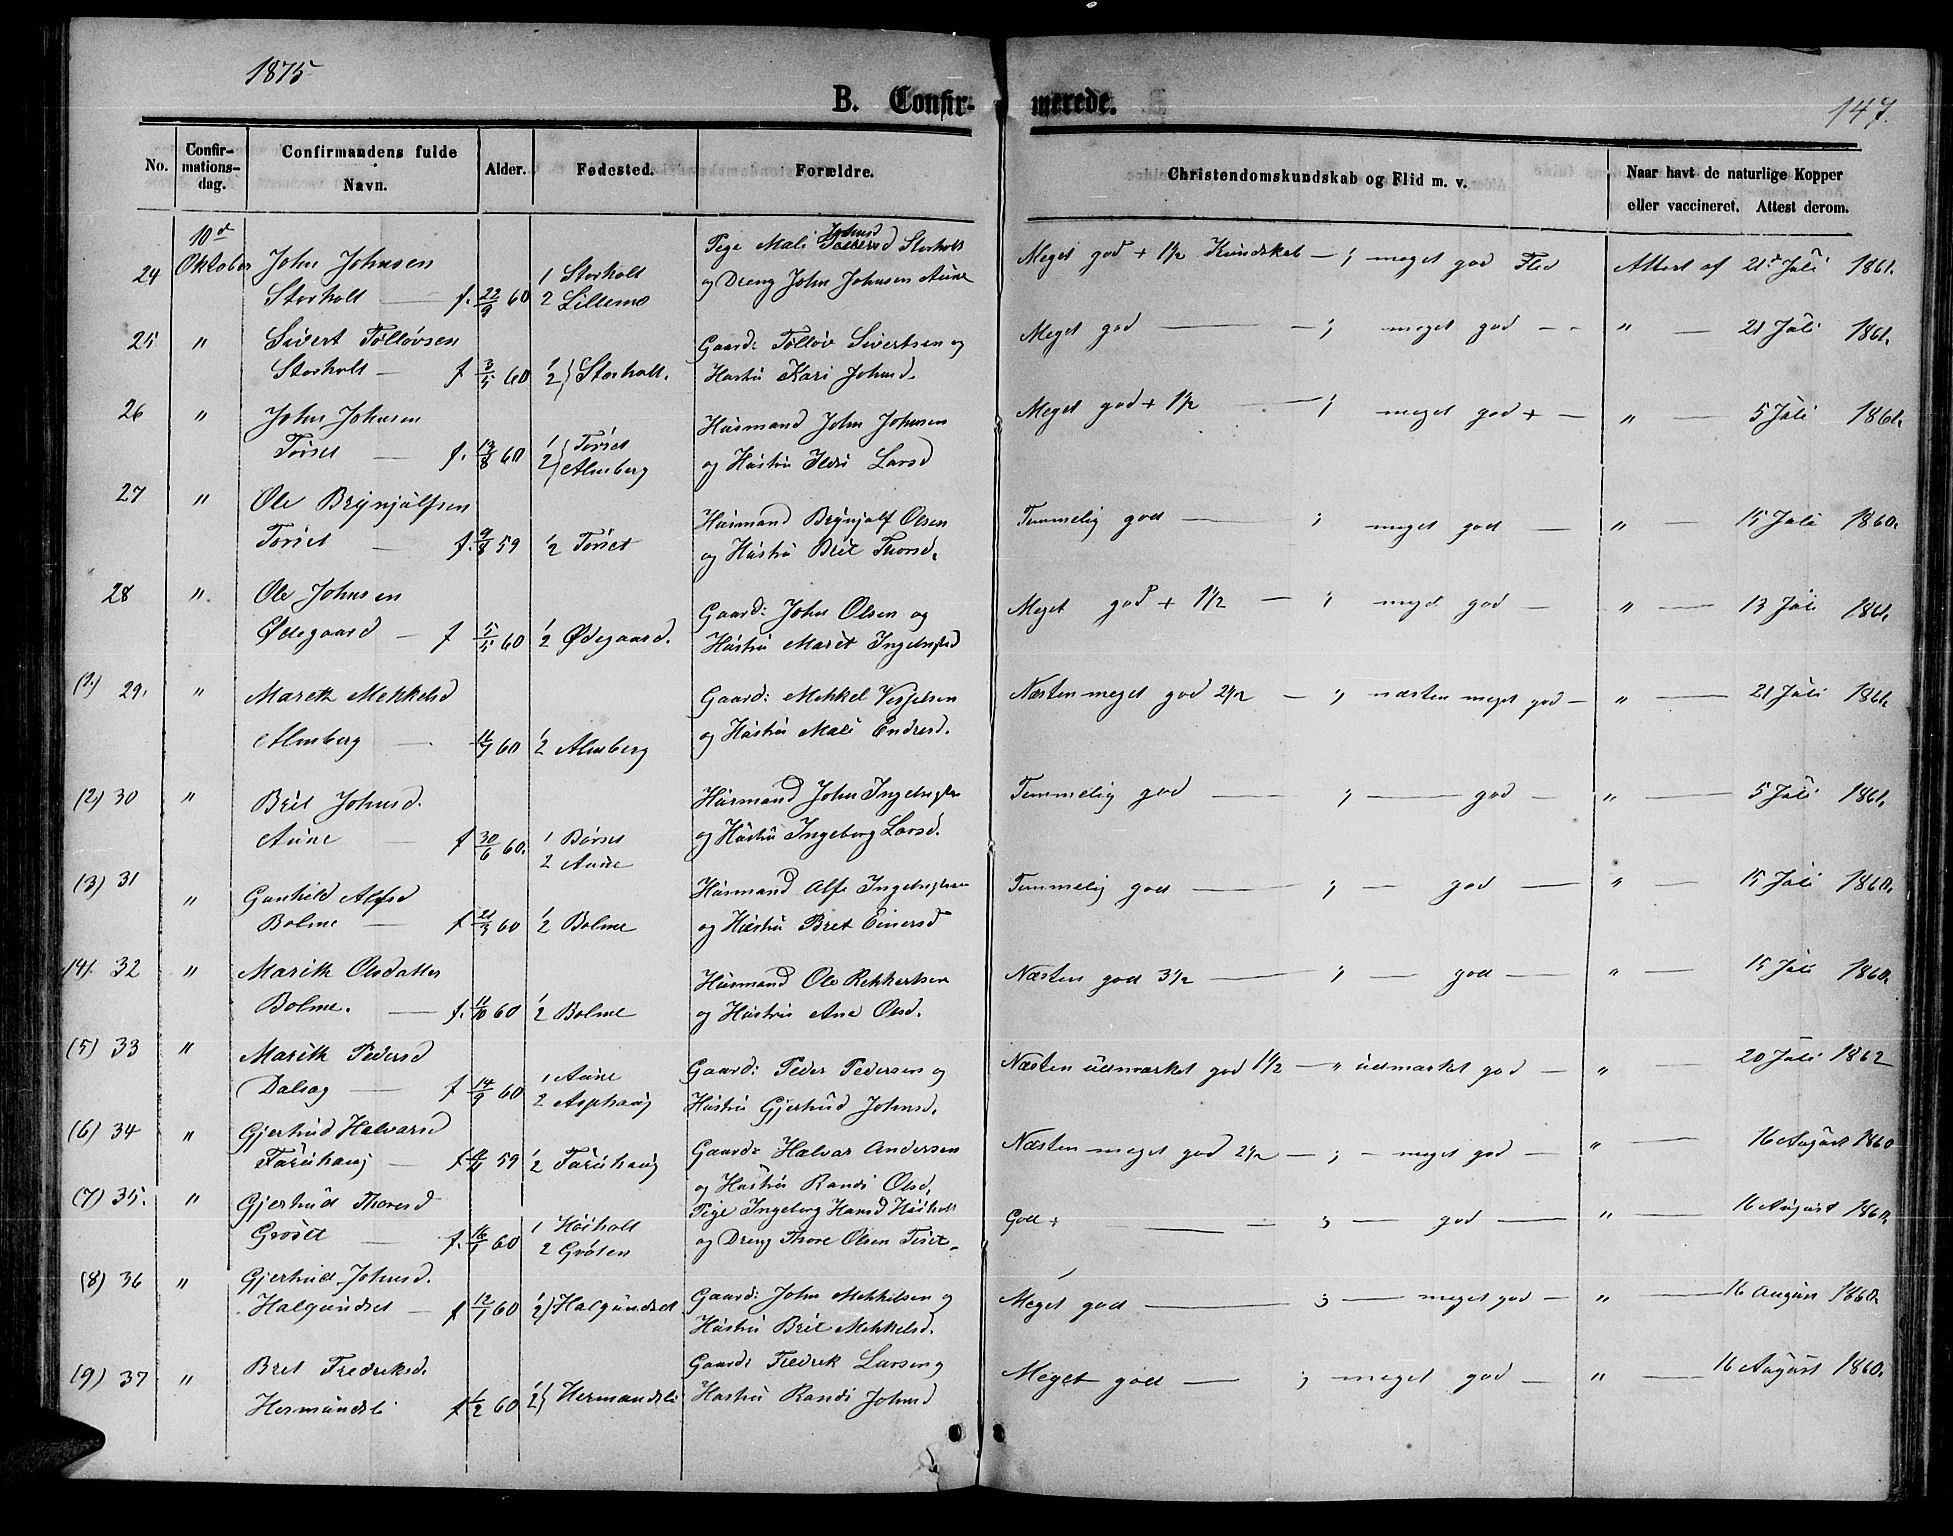 1875
B. Confir- merede.
147.
No. Confir-mations-dag. Confirmandens fulde Navn. Alder. Fødested. Forældre. Christendomskundskab og Flid m. v. Naar havt de naturlige Kopper eller vaccineret. Attest derom.
10d Pige Mali Johnsd Storholt
24 Oktober John Johnsen 1 Storholt og Dreng John Johnsen Aune Meget god + 1½ Kundskab — ; meget god Flid Attest af 21d Juli 1861.
Storholt — f. 22/9 60 2 Lillemo
25 " Sivert Tolløvsen Gaard: Tolløv Sivertsen og Meget god — ; meget god — " — 21 Juli 1861.
Storholt — f 3/5 60 1/2 } Storholt. Hustru Kari Johnsd.
26 " John Johnsen Husmand John Johnsen Meget god + 1½ — ; meget god + — " — 5 Juli 1861.
Torset — f. 13/8 60 1/2 } Torset Almberg og Hustru Ildri Larsd
27 " Ole Brynjulfsen Husmand Brynjolf Olsen Temmelig god — ; meget god — " — 15 Juli 1860.
Torset — f. 9/8 59 1/2 Torset og Hustru Brit Thorsd.
28 " Ole Johnsen Gaard: John Olsen og Meget god + 1½ — ; meget god — " — 13 Juli 1861.
Ødegaard — f 5/5 60 1/2 Ødegaard. Hustru Marit Ingebrigtsd
(1.) 29. " Marith Mekkelsd Gaard: Mekkel Vespelsen Næsten meget god 2½ — ; næsten meget god — " — 21 Juli 1861.
Almberg — 60 1/2 Almberg og Hustru Mali Endresd.
(2) 30 " Brit Johnsd. Husmand John Ingebrigtsen Temmelig god — ; — god — " — 5 Juli 1861.
Aune — f 30/6 60. 1 Børset 2 Aune og Hustru Ingeborg Larsd.
(3) 31 " Gunhild Alfsd Husmand Alfe Ingebrigtsen Temmelig god — ; — god — " — 15 Juli 1860.
Bolme — f 21/3 60 1/2 Bolme og Hustru Bret Einersd
(4). 32 " Marith Olsdatter Husmand Ole Rekkertsen Næsten god 3½ — ; — god — " — 15 Juli 1860.
Bolme. — f. 60 1/2 Bolme og Hustru Ane Olsd.
(5) 33 " Marith Pedersd Gaard: Peder Pedersen og Næsten udmærket god 1½ — " udmærket god — " — 20 Juli 1862
Dalsag — f 14/9 60 1 Aune 2 Asphaug Hustru Gjertrud Johnsd.
(6) 34 " Gjertrud Halvarsd Gaard: Halvar Andersen Næsten meget god 2½ — ; — meget god — " — 16 August 1860
Faruhaug — f 59 1/2 Faruhaug og Hustru Randi Olsd.
(7) 35. " Gjertrud Thoresd Pige Ingeborg Hansd Høiholt God + — ; — god — " — 16 August 1860.
Grøset — f. 16/1 60 1 Høiholt 2 Grøten og Dreng Thore Olsen Tiset.
(8) 36 " Gjertrud Johnsd. Gaard: John Mekkelsen og Meget god — ; — meget god — " — 16 August 1860.
Halgundset — f 12/1 60 1/2) Halgundset Hustru Brit Mekkelsd.
(9) 37 " Bret Fredriksd. Gaard: Fredrik Larsen og Meget god — ; meget god — " — 16 August 1860.
Hermundsli f 1/2 60 1/2} Hermandsli Hustru Randi Johnsd